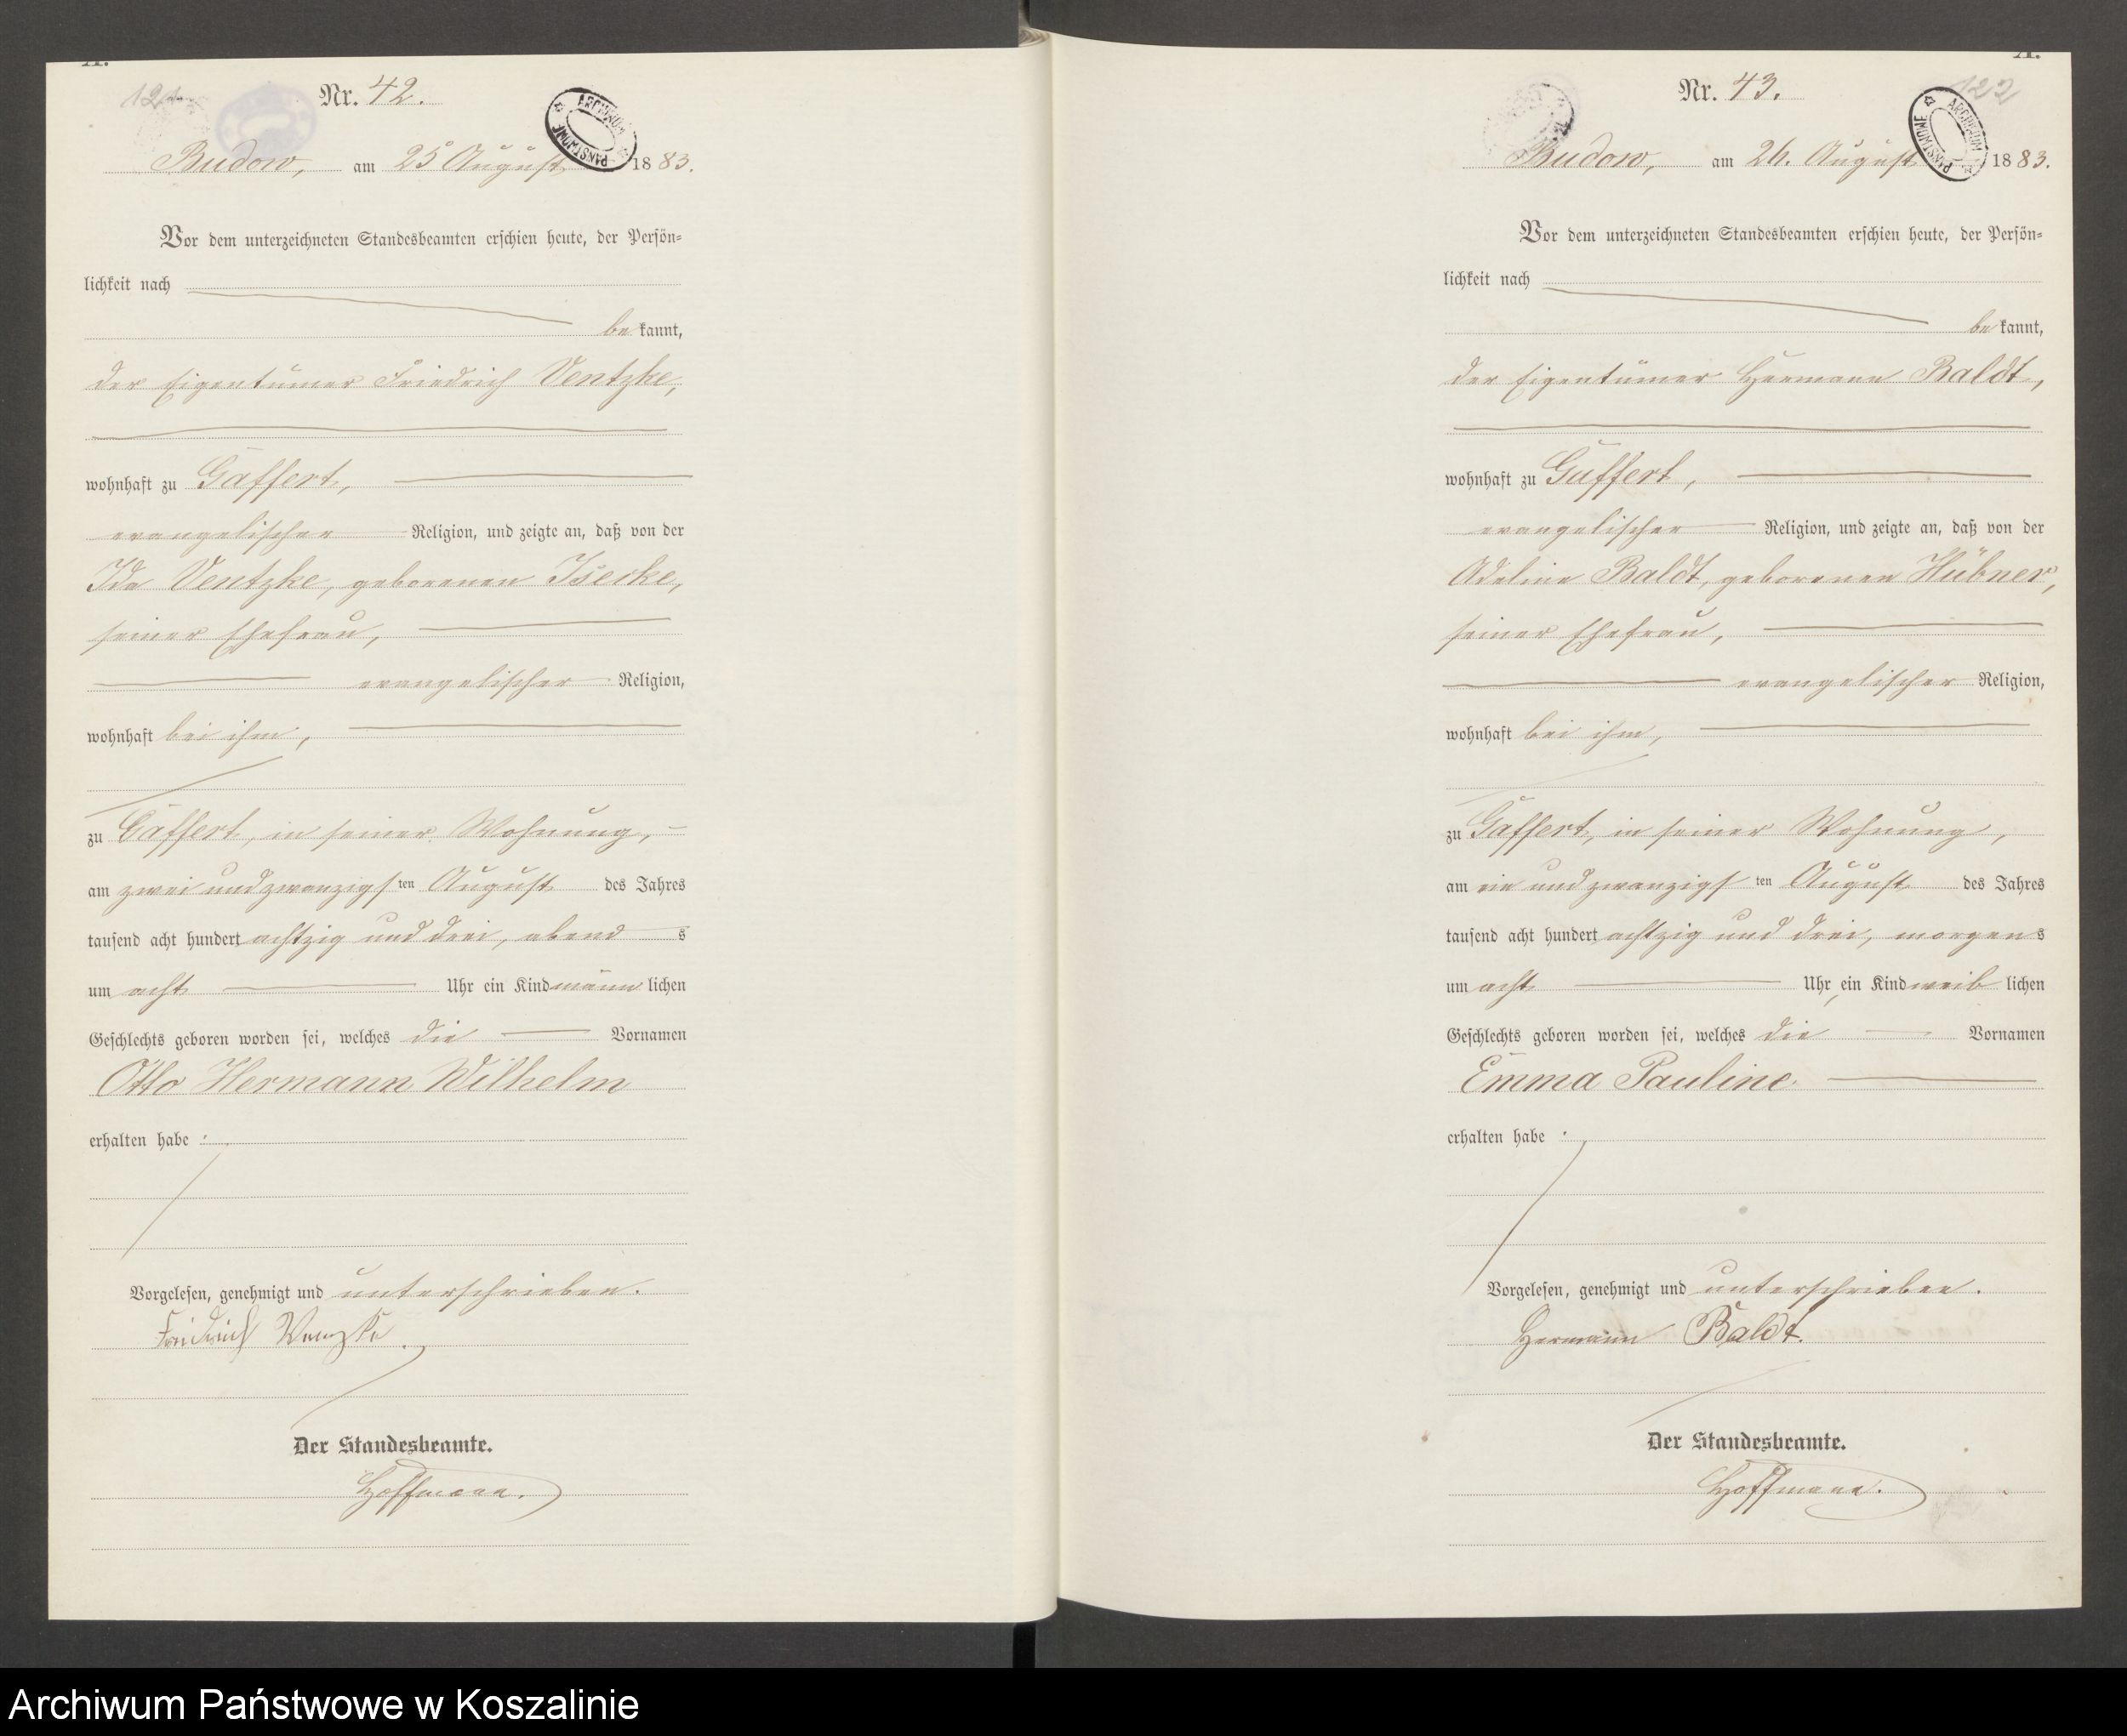 A.
121
Nr. 42.
ARCHIWUM PAŃSTWOWE
Budow, am 25 August 1883.
Vor dem unterzeichneten Standesbeamten erschien heute, der Persön-
lichkeit nach
bekannt,
der Eigentümer Friedrich Ventzke,
wohnhaft zu Gaffert,
evangelischer Religion, und zeigte an, daß von der
Ida Ventzke, geborenen Isecke,
seiner Ehefrau,
evangelischer Religion,
wohnhaft bei ihm,
zu Gaffert, in seiner Wohnung,
am zwei und zwanzigsten August des Jahres
tausend acht hundert achtzig und drei, abends
um acht Uhr ein Kind männlichen
Geschlechts geboren worden sei, welches die Vornamen
Otto Hermann Wilhelm
erhalten habe.
Vorgelesen, genehmigt und unterschrieben.
Friedrich Wenzke
Der Standesbeamte.
Hoffmann.
A.
122
Nr. 43.
ARCHIWUM PAŃSTWOWE
Budow, am 26. August 1883.
Vor dem unterzeichneten Standesbeamten erschien heute, der Persön-
lichkeit nach
bekannt,
der Eigentümer Hermann Baldt,
wohnhaft zu Gaffert,
evangelischer Religion, und zeigte an, daß von der
Adeline Baldt, geborenen Hübner,
seiner Ehefrau,
evangelischer Religion,
wohnhaft bei ihm,
zu Gaffert, in seiner Wohnung,
am ein und zwanzigsten August des Jahres
tausend acht hundert achtzig und drei, morgens
um acht Uhr, ein Kind weiblichen
Geschlechts geboren worden sei, welches die Vornamen
Emma Pauline
erhalten habe.
Vorgelesen, genehmigt und unterschrieben.
Hermann Baldt.
Der Standesbeamte.
Hoffmann.
Archiwum Państwowe w Koszalinie